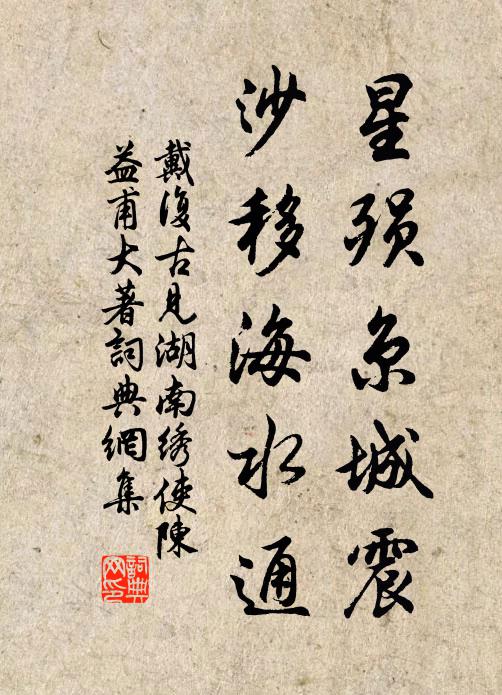 星殒京城震
沙移海水通
戴復古見湖南绣使陳
益甫大著詞典網集
詞典网印